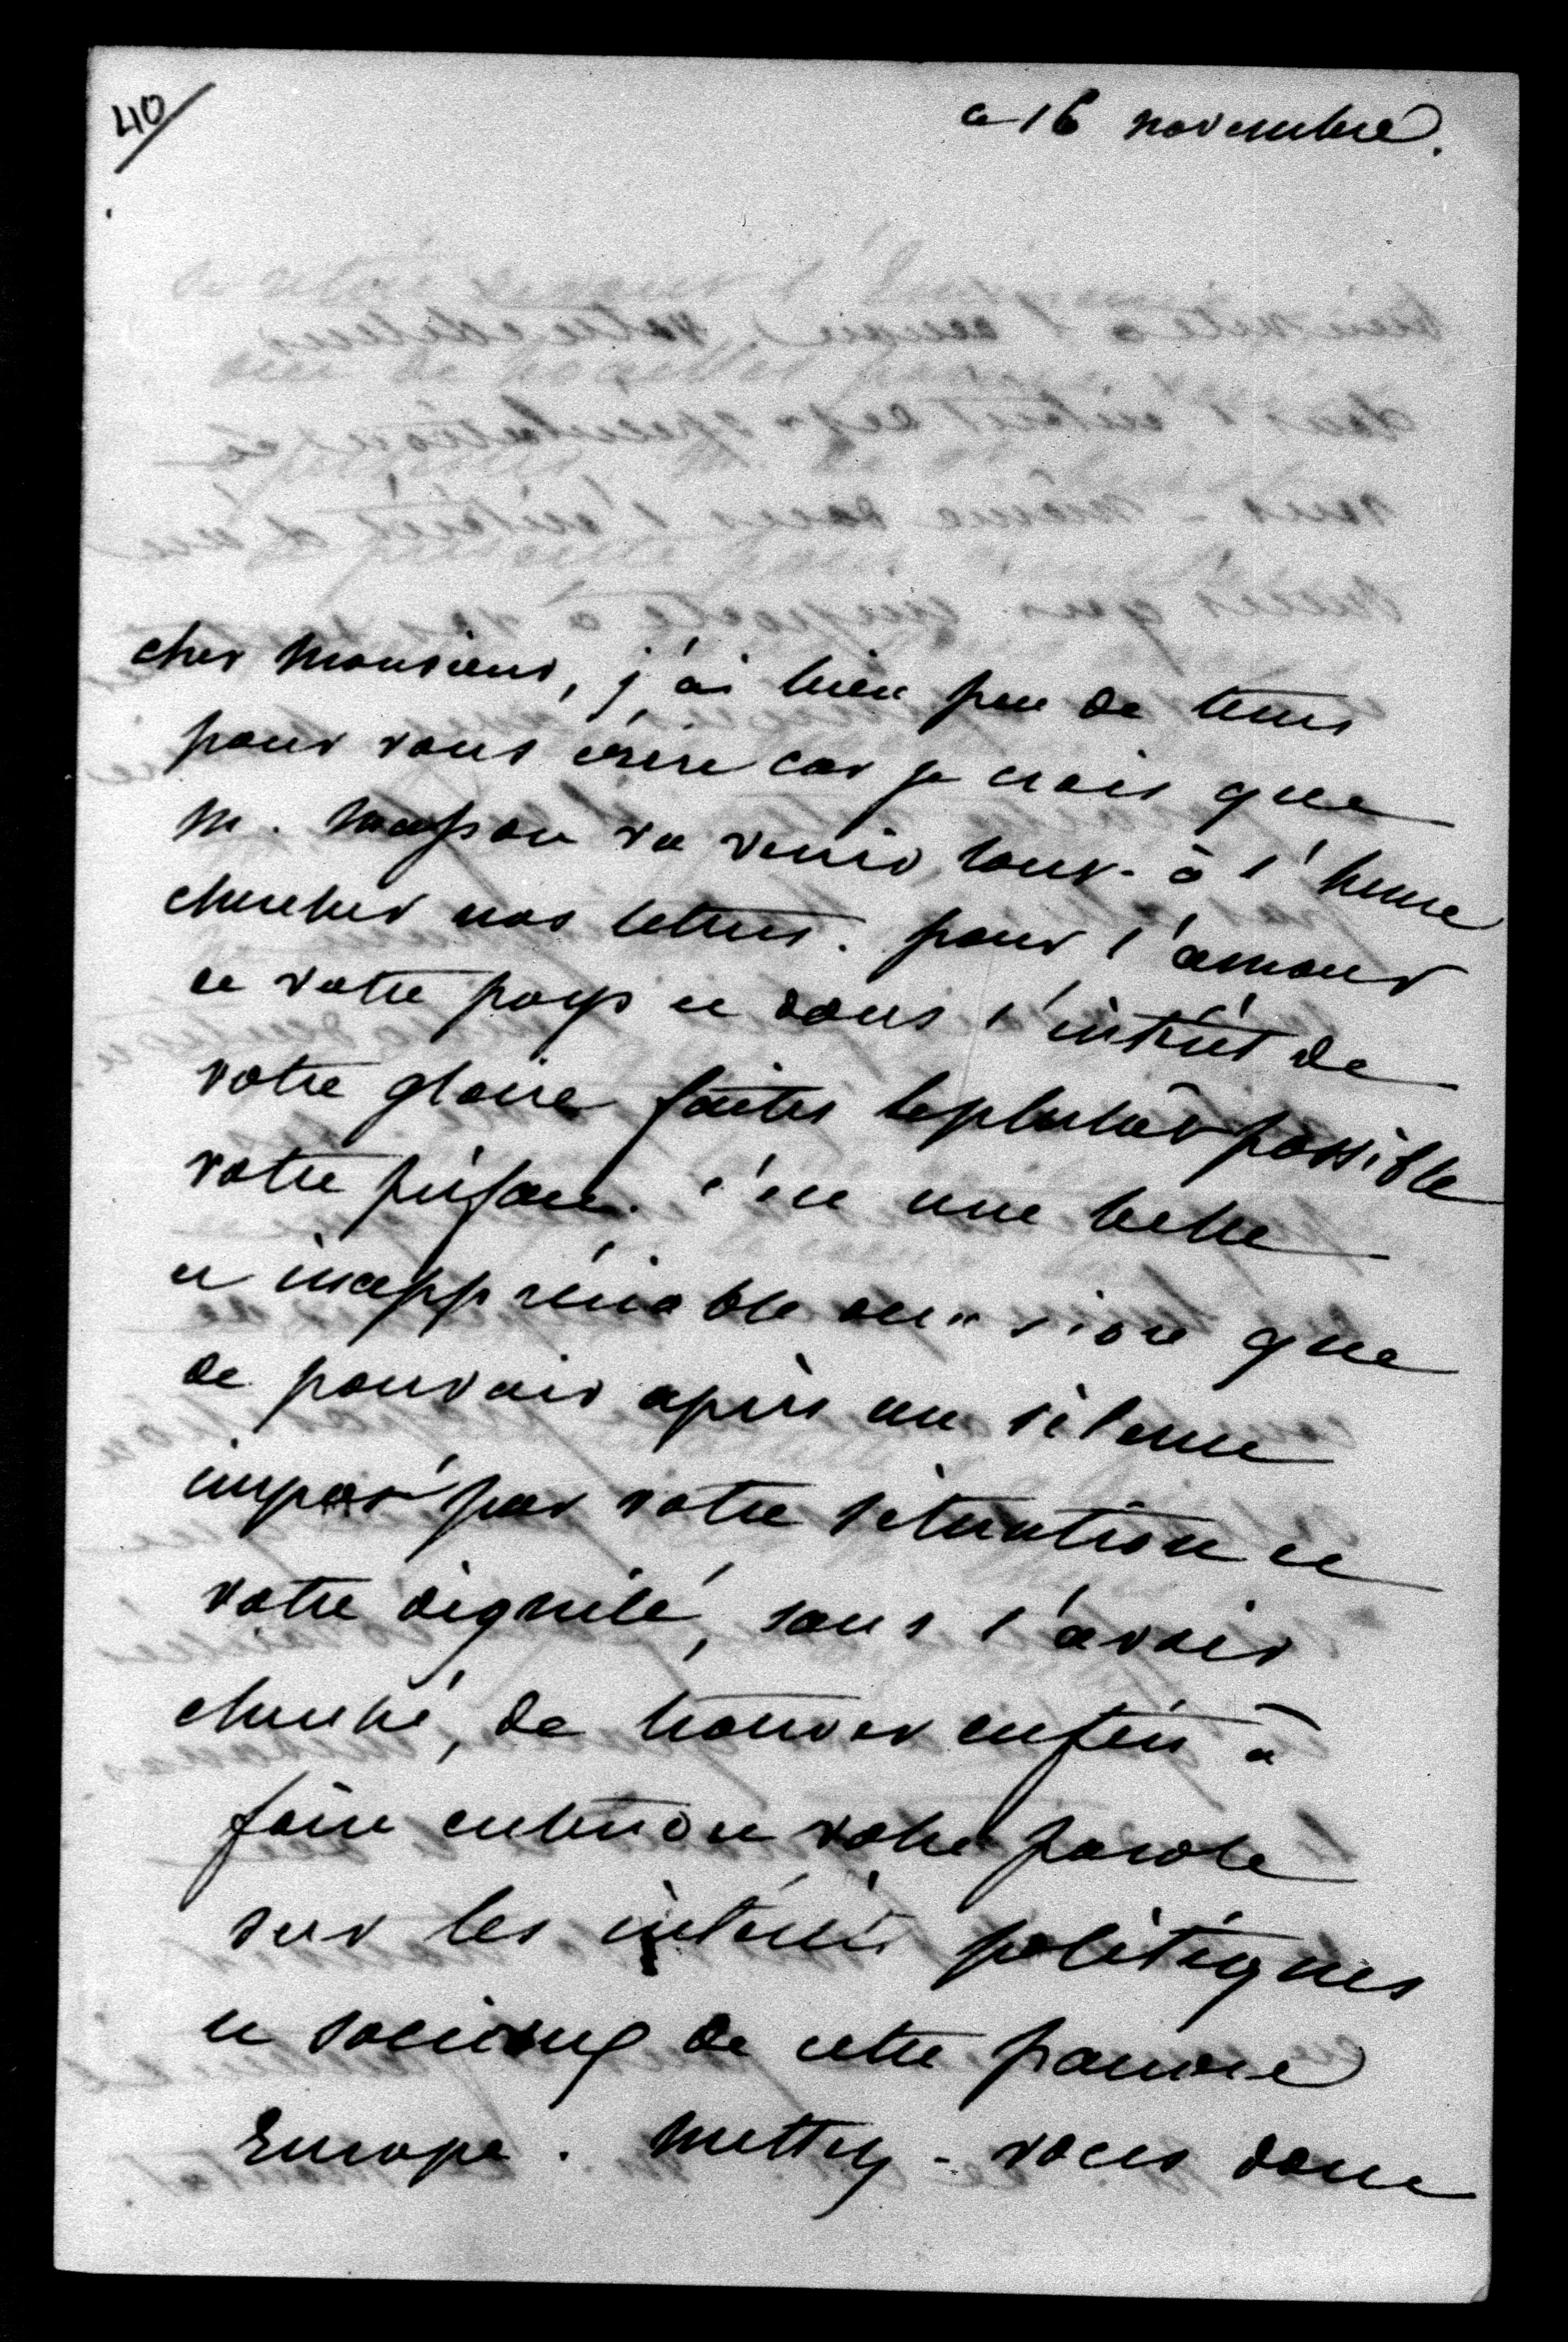 40
ce 16 novembre.
cher Monsieur, j'ai bien peu de tems
pour vous écrire car je crois que
M. Masson va venir tout-à l'heure
chercher nos lettres. pour l'amour
de votre pays et dans l'intérêt de
votre gloire faites le plutôt possible
votre préface. c'est une belle
et inappréciable occasion que
de pouvoir après un silence
imposé par votre situation et
votre dignité, sans l'avoir
cherché, de trouver enfin à
faire entendre votre parole
sur les intérêts politiques
et sociaux de cette pauvre
Europe. Mettez-vous donc